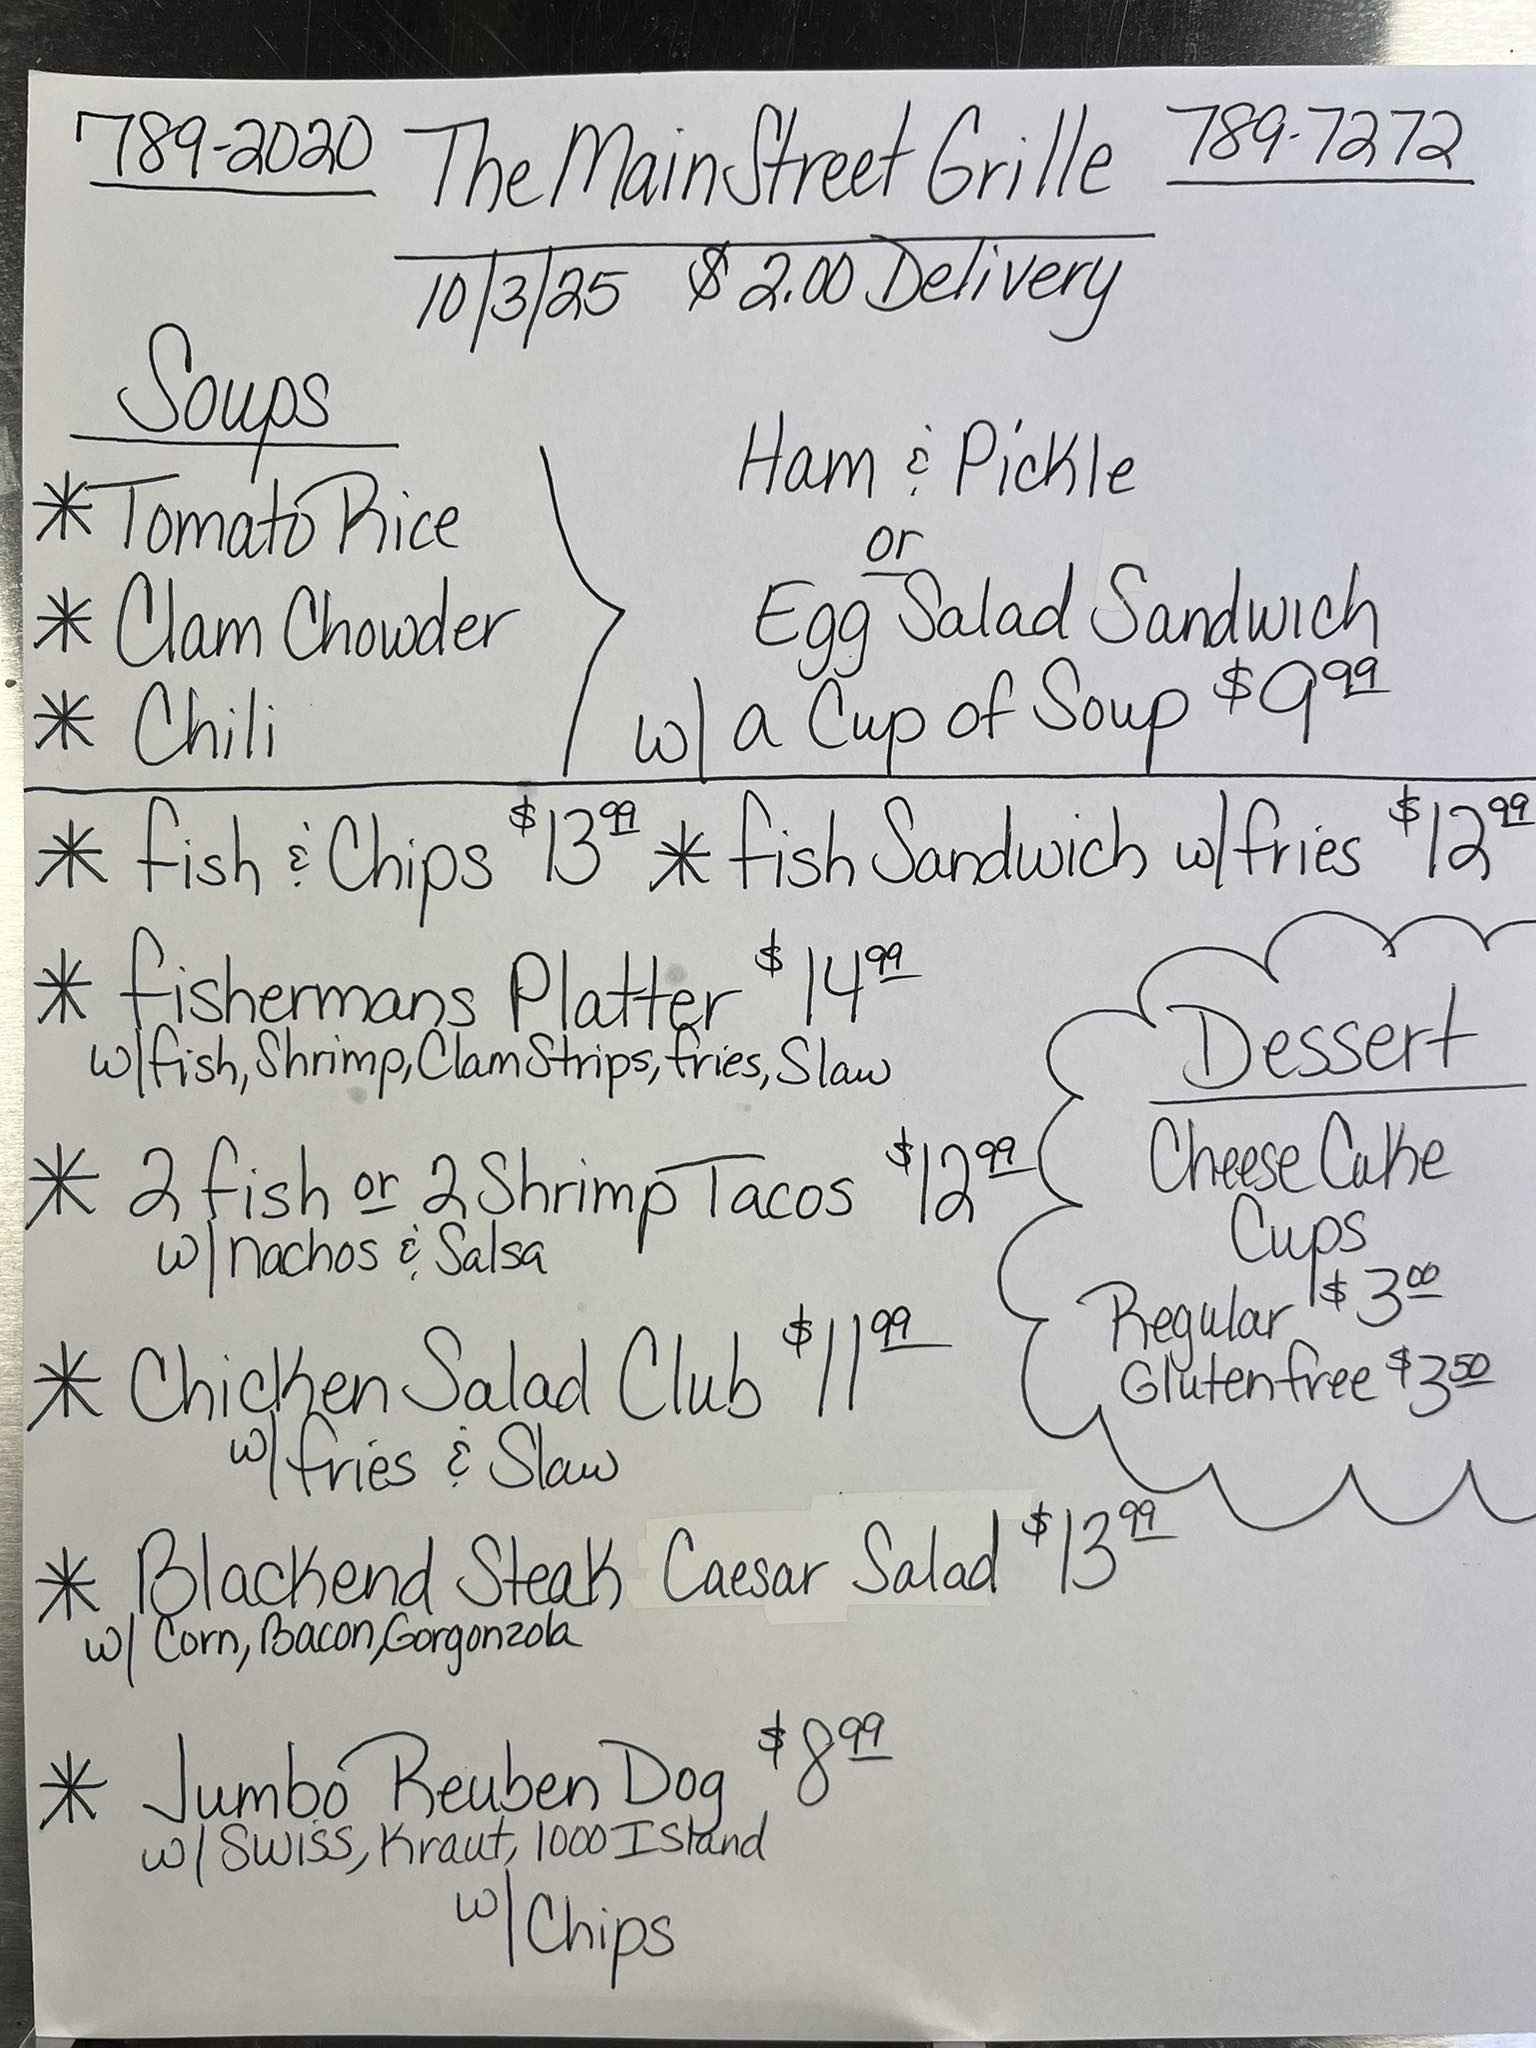 789-2020 The Main Street Grille 789-7272
10/3/25 $2.00 Delivery
Soups
* Tomato Rice
* Clam Chowder
* Chili
Ham & Pickle
or
Egg Salad Sandwich
w/ a Cup of Soup $9.99
* Fish & Chips $13.99 * Fish Sandwich w/fries $12.99
* Fishermans Platter $14.99
w/fish, Shrimp, Clam Strips, fries, Slaw
* 2 fish or 2 Shrimp Tacos $12.99
w/ nachos & Salsa
* Chicken Salad Club $11.99
w/ fries & Slaw
Dessert
Cheese Cake
Cups
Regular $3.00
Gluten free $3.50
* Blackend Steak Caesar Salad $13.99
w/ Corn, Bacon, Gorgonzola
* Jumbo Reuben Dog $8.99
w/ Swiss, Kraut, 1000 Island
w/ Chips